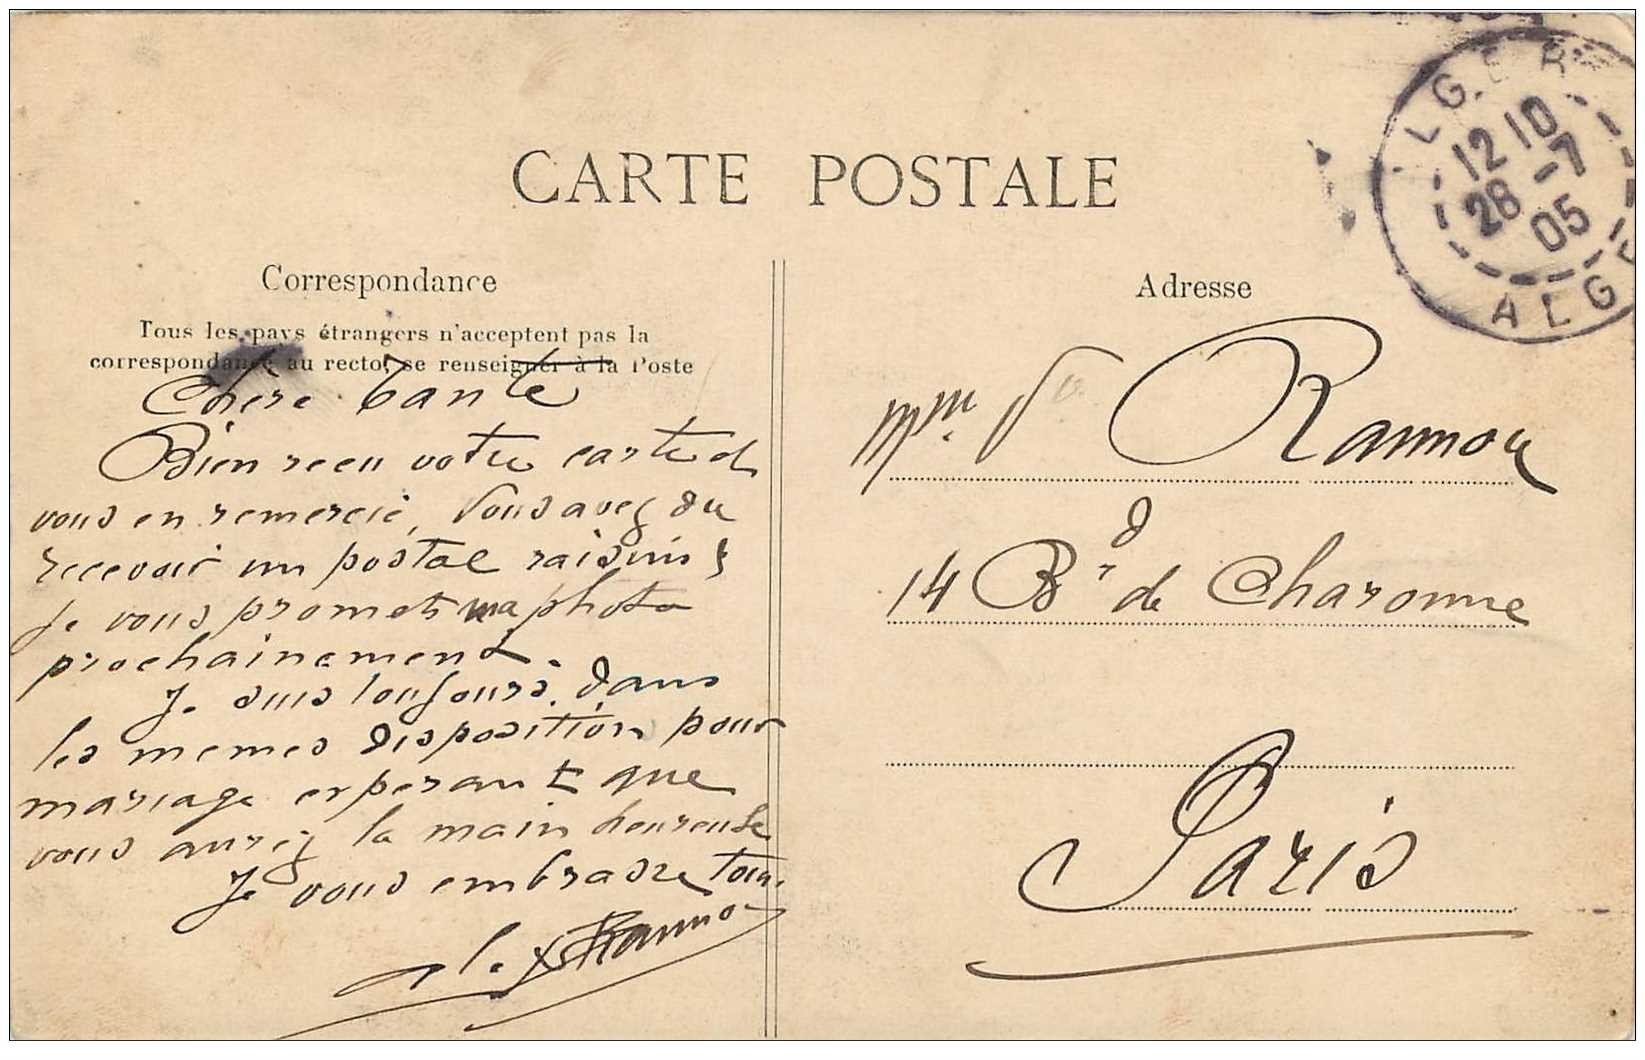 CARTE POSTALE
Correspondance
Tous les pays étrangers n'acceptent pas la
correspondance au recto, se renseigner à la Poste
Chère tante
Bien recu votre carte et
vous en remercie, Vous avez du
recevoir un postal raisins
Je vous promets ma photo
prochainement.
Je suis toujours dans
les memes disposition pour
mariage esperant que
vous aurez la main heureuse
Je vous embrasse tous.
Adresse
Mme Ve Rannou
14 Bd de Charonne
Paris
ALGER
12 10
28 -7
05
ALGE